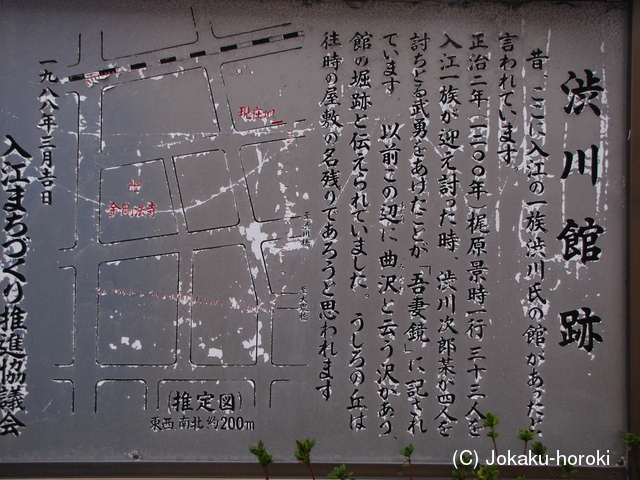 渋川館跡
昔、ここに入江の一族渋川氏の館があったと
言われています。
正治二年(一二〇〇年)梶原景時一行三十三人を
入江一族が迎え討った時、渋川次郎某が四人を
討ちとる武勇をあげたことが「吾妻鏡」に記され
ています 以前この辺に曲沢と云う沢があり、
館の堀跡と伝えられていました。うしろの丘は
往時の屋敷の名残りであろうと思われます
現在地
金剛法寺
(推定図)
東西南北約200m
一九八八年三月吉日
入江まちづくり推進協議会
(C) Jokaku-horoki